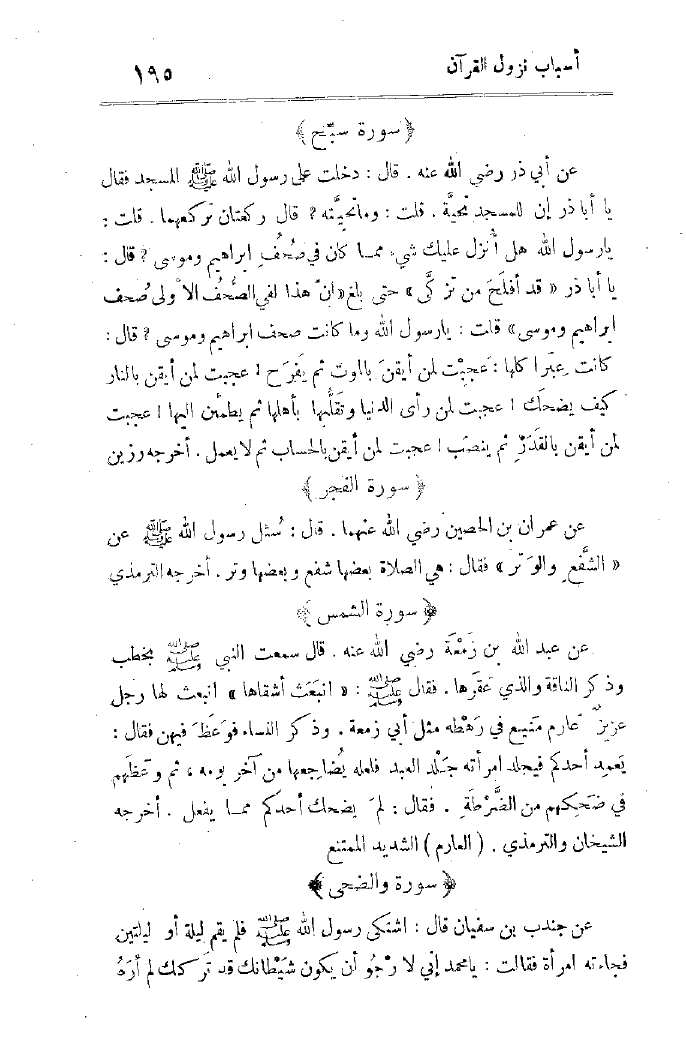 أسباب نزول القرآن ١٩٥
﴿ سورة سبّح ﴾
عن أبي ذر رضي الله عنه . قال : دخلت على رسول الله ﷺ المسجد فقال
يا أبا ذر إن للمسجد تحيَّة . قلت : وما تحيَّته ? قال ركعتان تركعهما . قلت :
يا رسول الله هل أُنزل عليك شيء مما كان في صُحُفِ ابراهيم وموسى ? قال :
يا أبا ذر « قد أفلَحَ من تزكَّى » حتى بلغ « انّ هذا لفي الصُّحُف الأولى صُحف
ابراهيم وموسى » قلت : يارسول الله وما كانت صحف ابراهيم وموسى ? قال :
كانت عِبَرا كلها : عَجِبْت لمن أيقن بالموت ثم يَفرَح ! عجبت لمن أيقن بالنار
كيف يضحَك ! عجبت لمن رأى الدنيا وتقَلُّبها بأهلها ثم يطمئن اليها ! عجبت
لمن أيقن بالقَدَر ثم ينصَب ! عجبت لمن أيقن بالحساب ثم لا يعمل . أخرجه رزين
﴿ سورة الفجر ﴾
عن عمران بن الحصين رضي الله عنهما . قال : سُئل رسول الله ﷺ عن
« الشَّفع والوَتر » فقال : هي الصلاة بعضها شفع وبعضها وتر . أخرجه الترمذي
﴿ سورة الشمس ﴾
عن عبد الله بن زَمْعَة رضي الله عنه . قال سمعت النبي ﷺ يخطب
وذكر الناقة والذي عَقَرها . فقال ﷺ : « انبَعَث أشقاها » انبعث لها رجل
عزيزٌ عارم منيع في رَهْطه مثل أبي زمعة . وذكر النساء فوَعَظَ فيهن فقال :
يَعمِد أحدكم فيجلد امرأته جَلْد العبد فلعله يُضاجعها من آخر يومه ، ثم وعَظَهم
في ضَحِكهم من الضَّرْطَةِ . فقال : لمَ يضحك أحدكم مما يفعل . أخرجه
الشيخان والترمذي . ( العارم ) الشديد الممتنع
﴿ سورة والضحى ﴾
عن جندب بن سفيان قال : اشتكى رسول الله ﷺ فلم يقم ليلة أو ليلتين
فجاءته امرأة فقالت : يامحمد إني لارْجُو أن يكون شَيْطانك قد تَركك لم أرَهُ